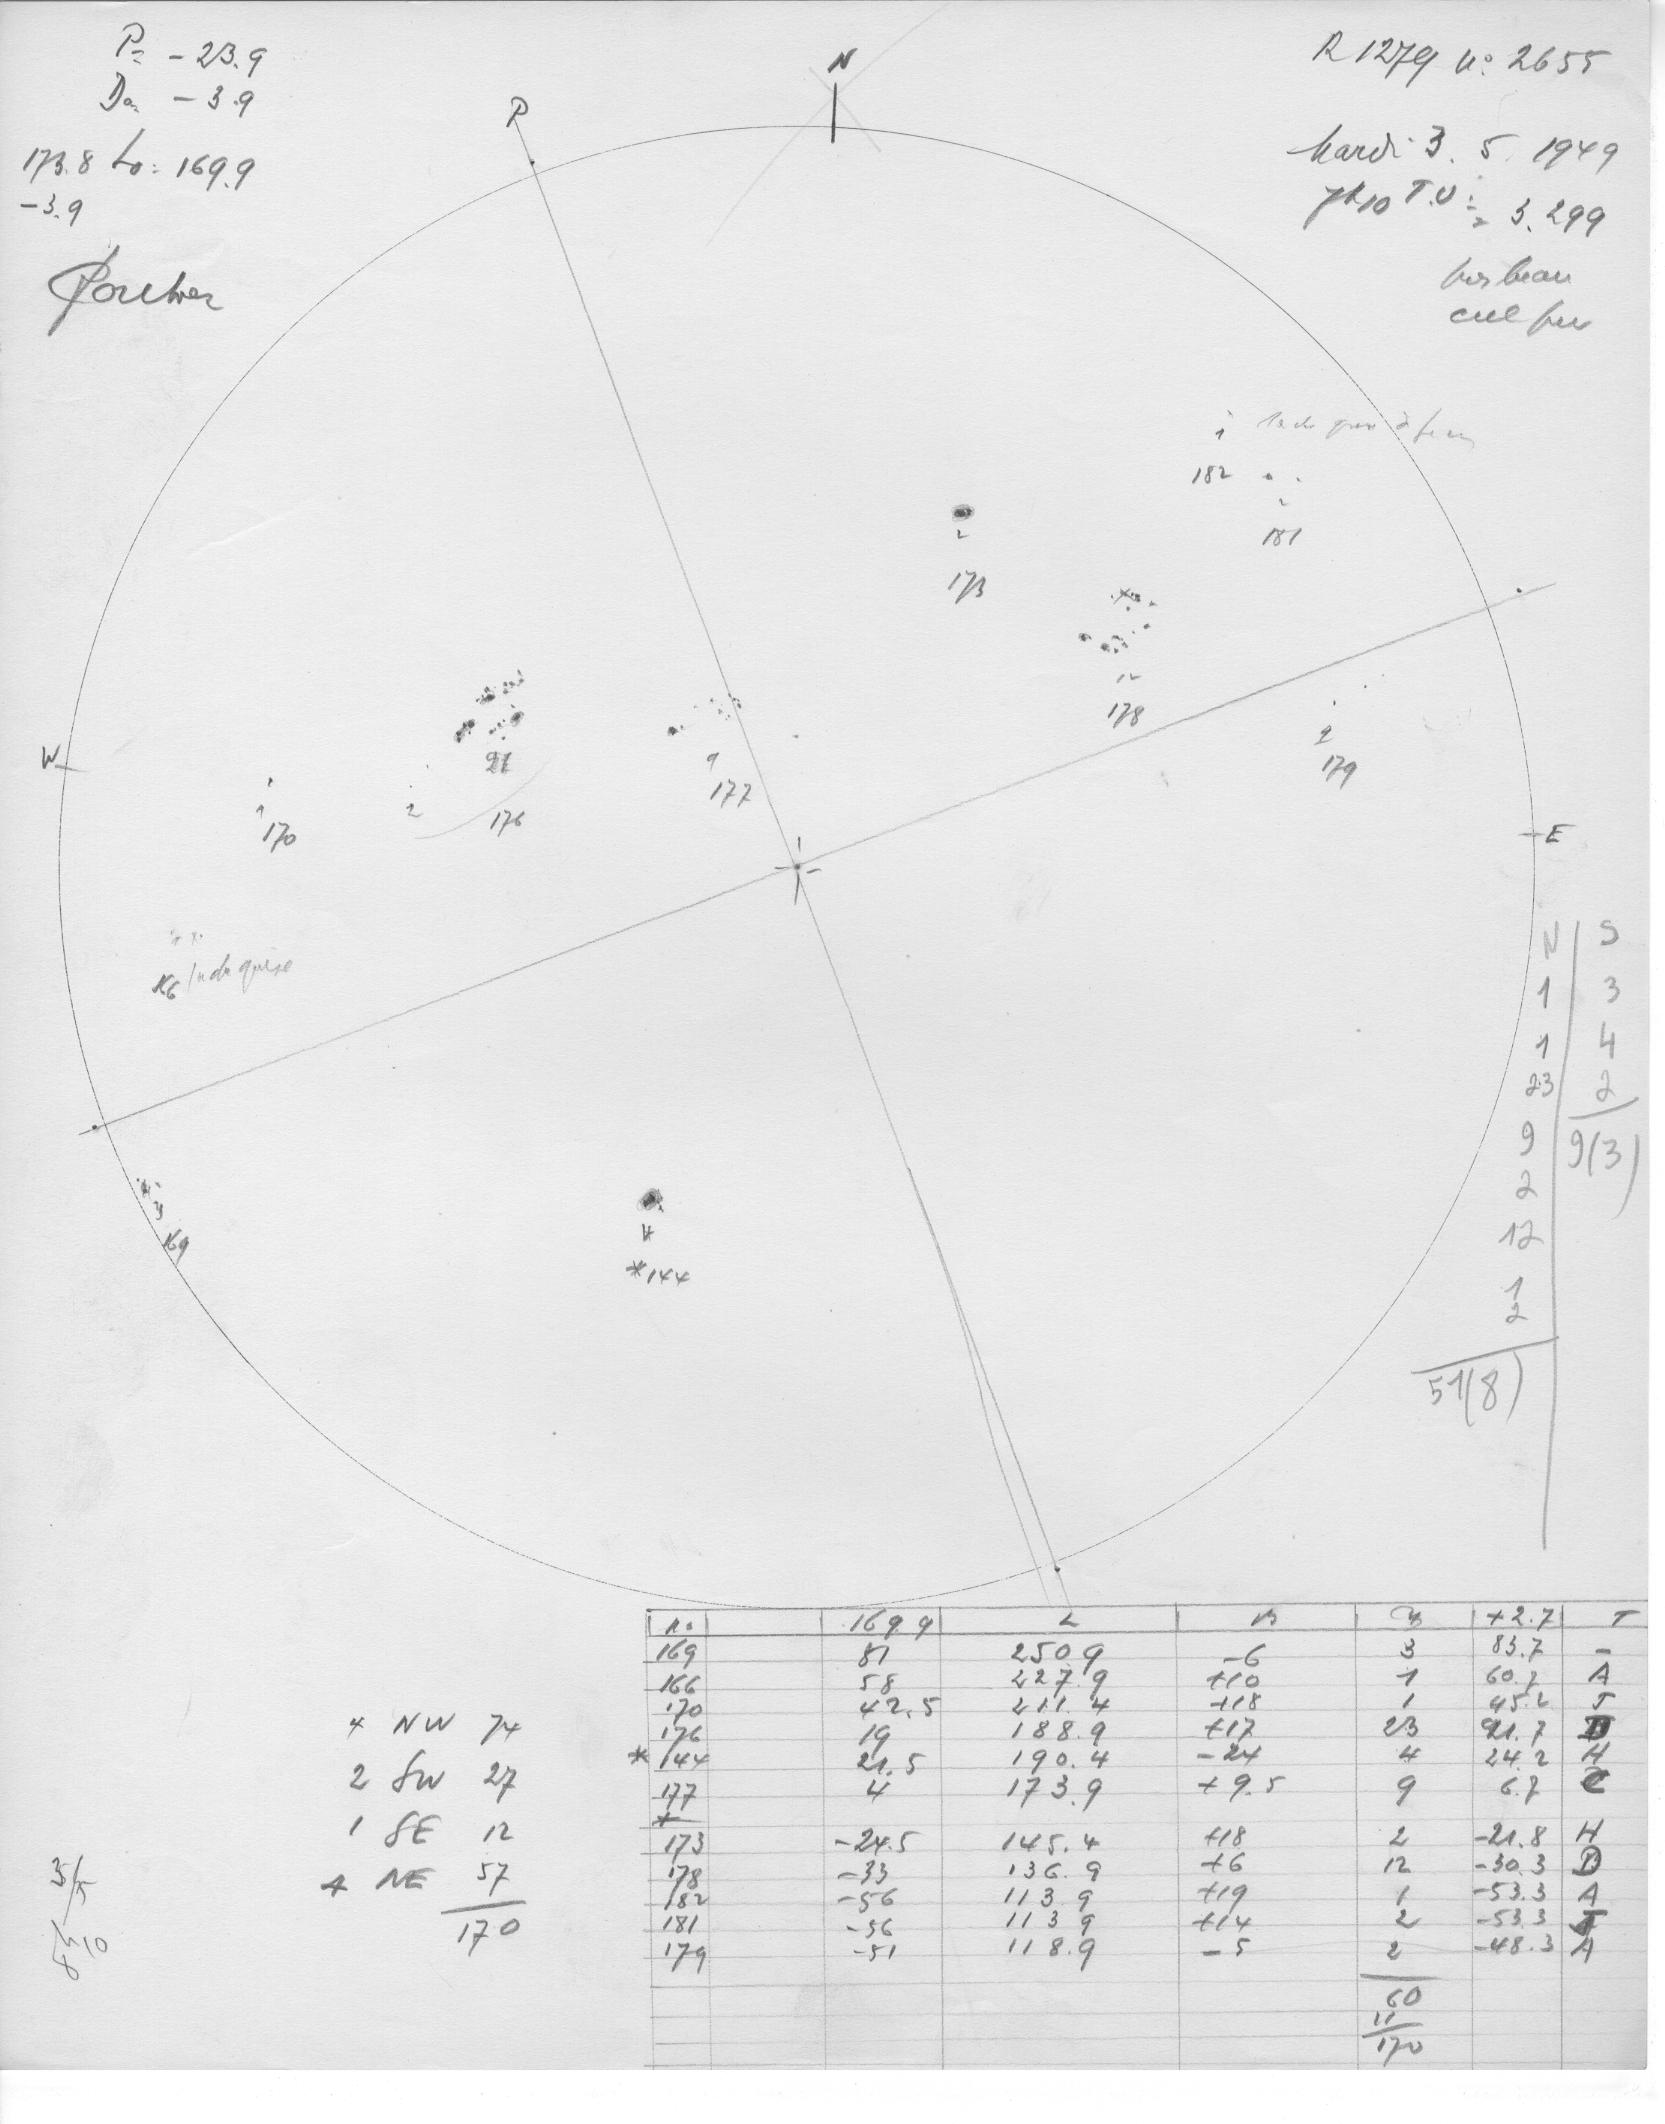 P= -23.9
Do= -3.9
173.8 Lo= 169.9
-3.9
R 1279 n: 2655
Mardi 3. 5. 1949
7h10 T.U = 3.299
N
P
W
E
1
182
181
2
173
12
178
2
179
21
2
176
1
170
9
177
166
3
169
4
*144
N S
1 3
1 4
23 2
9 9(3)
2
12
1
2
51(8)
n: 169.9 L B +2.7 T
169 81 250 9 -6 3 83.7 -
166 58 227.9 +10 1 60.7 A
170 42.5 211.4 +18 1 45.2 J
176 19 188.9 +17 23 21.7 D
*144 21.5 190.4 -24 4 24.2 H
177 4 173.9 +9.5 9 6.7 C
*
173 -24.5 145.4 +18 2 -21.8 H
178 -33 136.9 +6 12 -30.3 D
182 -56 113 9 +19 1 -53.3 A
181 -56 113 9 +14 2 -53.3 J
179 -51 118.9 -5 2 -48.3 A
60
11
170
4 NW 74
2 SW 27
1 SE 12
4 NE 57
170
3/5